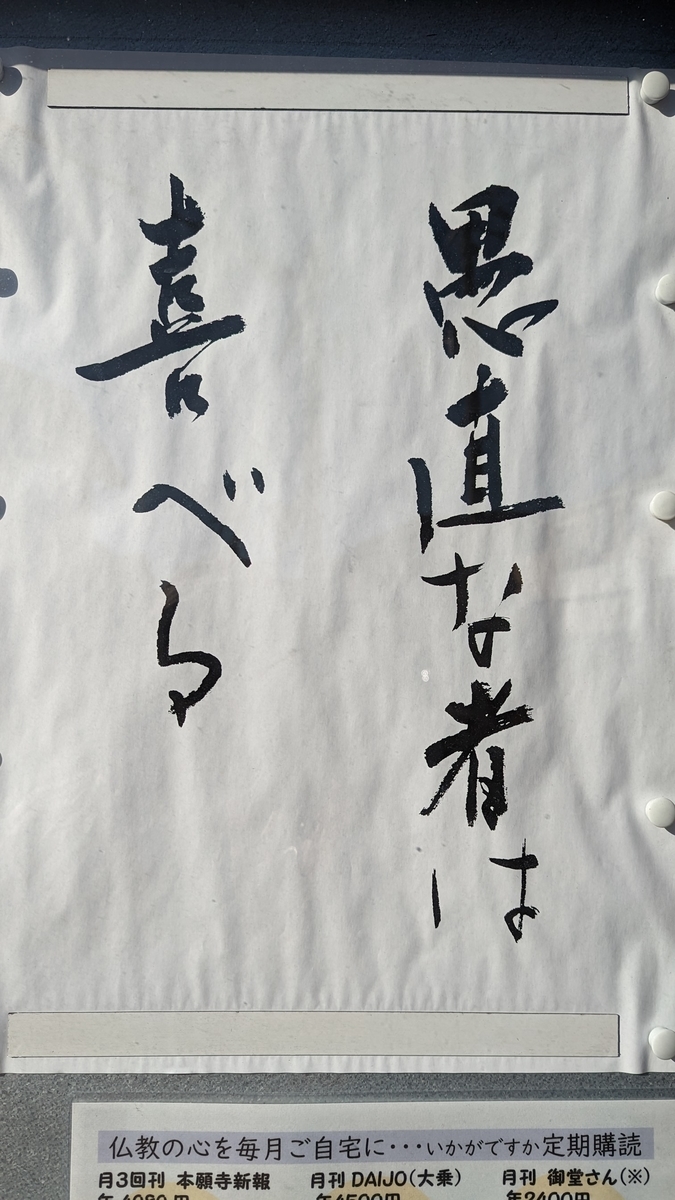 愚直な者は
喜べる
仏教の心を毎月ご自宅に･･･いかがですか定期購読
月3回刊 本願寺新報 月刊 DAIJO(大乗) 月刊 御堂さん(※)